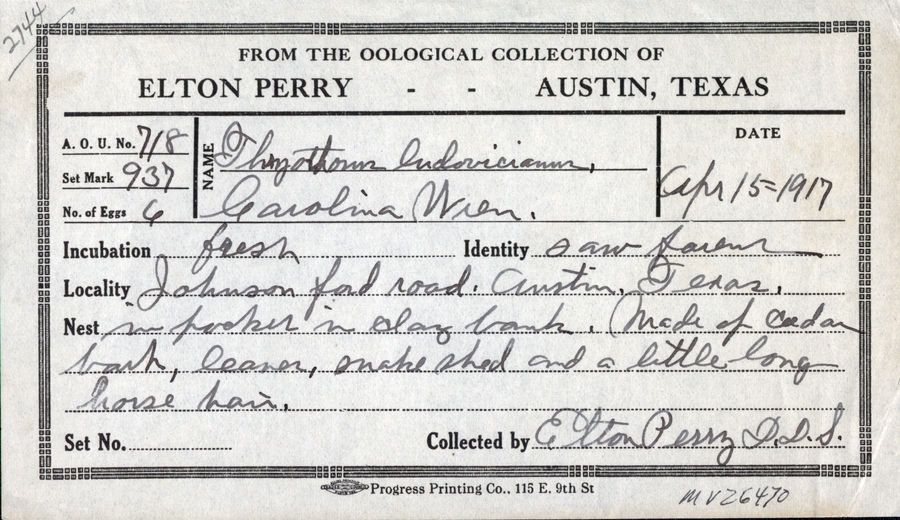 2744
FROM THE OOLOGICAL COLLECTION OF
ELTON PERRY - - AUSTIN, TEXAS
A. O. U. No. 718
Set Mark 937
No. of Eggs 6
NAME Thryothorus ludovicianus,
Carolina Wren.
DATE
Apr 15=1917
Incubation fresh Identity saw parent
Locality Johnson ford road. Austin, Texas.
Nest in pocket in clay bank. Made of cedar
bark, leaves, snake shed and a little long
horse hair.
Set No. Collected by Elton Perry D.D.S.
Progress Printing Co.. 115 E. 9th St
MVZ6470